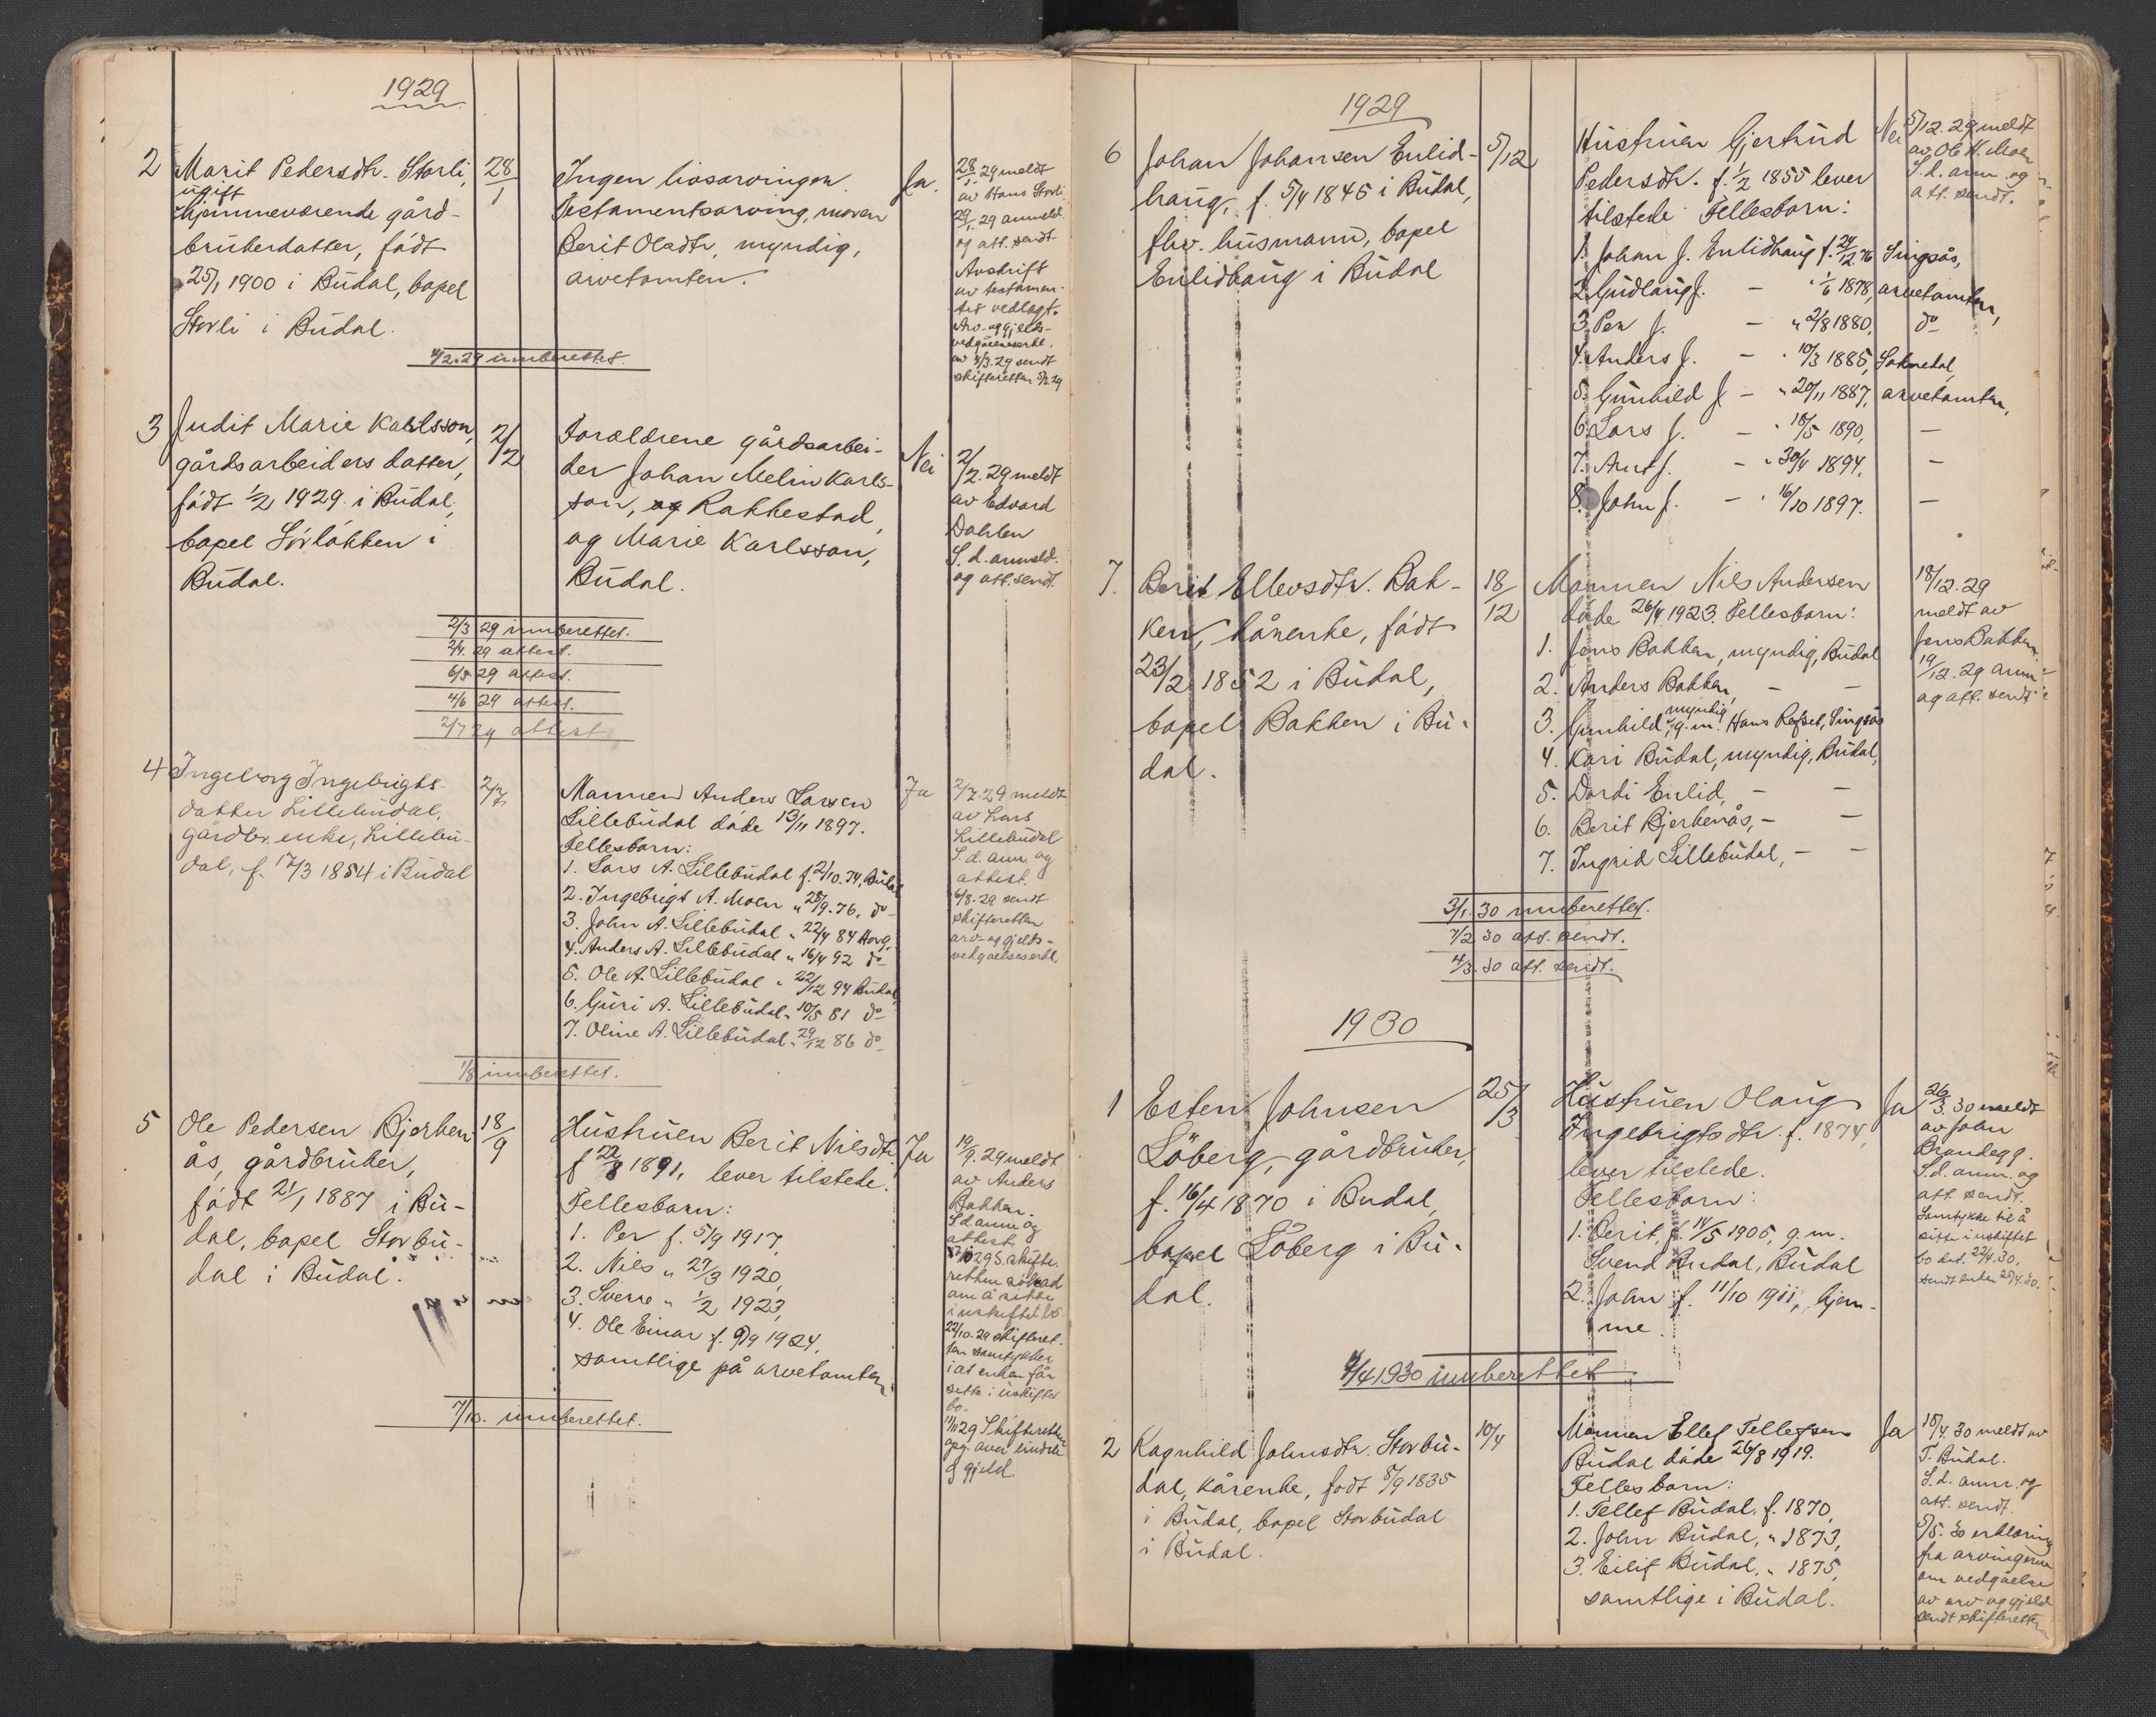 1929
2 Marit Pedersdtr. Storli, 28/1
ugift
hjemmeværende gård-
brukerdatter, født
25/1 1900 i Budal, bopel
Storli i Budal.
Ingen livsarvinger.
Testamentsarving, moren
Berit Olsdtr, myndig,
arvetomten.
Ja.
28/1 29 meldt
av Hans Storli
29/1 29 anmeld.
og att. sendt.
Avskrift
av testamen-
tet vedlagt.
Arv- og gjelds-
vedgåelseserkl.
sendt
skifteretten 5/3 29
4/2.29 innberettet.
3 Judit Marie Karlsson, 2/2
gårdsarbeiders datter,
født 1/2 1929 i Budal,
bopel Sörløkken i
Budal.
Forældrene gårdsarbei-
der Johan Melin Karls-
son, og Rakkestad,
og Marie Karlsson,
Budal.
Nei
2/2.29 meldt
av Edvard
Dahlen
S.d. anmeld.
og att. sendt.
2/3 29 innberettet.
2/4. 29 attest.
6/5 29 attest.
4/6 29 attest.
2/7 29 attest
4 Ingeborg Ingebrigts- 2/7
datter Lillebudal,
gårdbr. enke, Lillebu-
dal, f. 17/3 1854 i Budal
Mannen Anders Larsen
Lillebudal døde 13/11 1897.
Fellesbarn:
1. Lars A. Lillebudal f. 2/10.74, Budal
2. Ingebrigt A. Moen " 28/9.76, do
3. John A. Lillebudal " 22/4 84 Horg.
4. Anders A. Lillebudal " 16/4 92 do
5. Ole A. Lillebudal " 22/12 94 Budal,
6. Guri A. Lillebudal " 10/5 81 do
7. Oline A. Lillebudal " 29/12 86 do
Ja
2/7.29 meldt
av Lars
Lillebudal
S.d. anm. og
attest.
6/8.29 sendt
skifteretten
arv- og gjelds-
vedgåelseserkl.
1/8 innberettet.
5 Ole Pedersen Bjerken- 18/9
ås, gårdbruker,
født 21/1 1887 i Bu-
dal, bopel Storbu-
dal i Budal.
Hustruen Berit Nilsdtr.
f 22/8 1891, lever tilstede.
Fellesbarn:
1. Per f. 5/9 1917,
2. Nils " 27/3 1920,
3. Sverre " 1/2 1923,
4. Ole Einar f. 9/9 1924,
samtlige på arvetomten
Ja
19/9. 29 meldt
av Anders
Bakken.
S.d. anm og
attest
29 S. skifte-
retten søknad
om å sitte
i uskiftet bo
22/10.29 skifteret-
ten samtykker
i at enken får
sitte i uskiftet
bo.
11/11 29 Skifteretten
opg. over
& gjeld.
7/10. innberettet.
1929
6 Johan Johansen Enlid- 5/12
haug, f. 5/4 1845 i Budal,
fhv. husmann, bopel
Enlidhaug i Budal
Hustruen Gjertrud
Pedersdtr. f. 1/2 1855 lever
tilstede Fellesbarn:
1. Johan J. Enlidhaug f. 24/12.76 Singsås,
2. Gudlaug J. — " 1/6 1878, arvetomten,
3. Per J. — " 2/8 1880, do
4. Anders J. — " 10/3 1885, Soknedal,
5. Gunhild J — " 20/11 1887, arvetomten,
6. Lars J. — " 18/5 1890, —
7. Arnt J. — " 30/4 1894. —
8. John J. — " 16/10 1897. —
Nei
5/12.29 meldt
av Ole H. Moen
S.d. anm. og
att. sendt.
7. Berit Ellevsdtr. Bak- 18/12
ken, kårenke, født
23/2 1852 i Budal,
bopel Bakken i Bu-
dal.
Mannen Nils Andersen
døde 26/4 1923. Fellesbarn:
1. Jens Bakken, myndig, Budal
2. Anders Bakken, — —
3. Gunhild, myndig, g.m. Hans Refset, Singsås
4. Kari Budal, myndig, Budal,
5. Dordi Enlid, — —
6. Berit Bjerkenås, — —
7. Ingrid Lillebudal, — —
18/12.29
meldt av
Jens Bakken.
19/12.29 anm
og att. sendt
3/1.30 innberettet.
7/2 30 att. sendt.
4/3.30 att. sendt.
1930
1 Esten Johnsen 25/3
Löberg, gårdbruker,
f. 16/4 1870 i Budal,
bopel Löberg i Bu-
dal.
Hustruen Olaug
Ingebrigtsdtr. f. 1874,
lever tilstede.
Fellesbarn:
1. Berit, f. 14/5 1905, g.m.
Svend Budal, Budal
2. John f. 11/10 1911, hjem-
me.
Ja
26/3.30 meldt
av John
Brandegg.
S.d. anm. og
att. sendt.
Samtykke til å
sitte i uskiftet
bo dat. 22/4.30.
sendt enken 25/4.30.
7/4 1930 innberettet
2 Ragnhild Johnsdtr. Storbu- 10/4
dal, kårenke, født 5/9 1835
i Budal, bopel Storbudal
i Budal.
Mannen Ellef Tellefsen
Budal døde 26/8 1919.
Fellesbarn:
1. Tellef Budal, f. 1870,
2. John Budal, " 1873,
3. Eilif Budal, " 1875,
samtlige i Budal.
Ja
15/4.30 meldt av
T. Budal.
S.d. anm. og
att. sendt.
5/5.30 erklæring
fra arvingerne
om vedgåelse
av arv og gjeld
sendt skifteretten